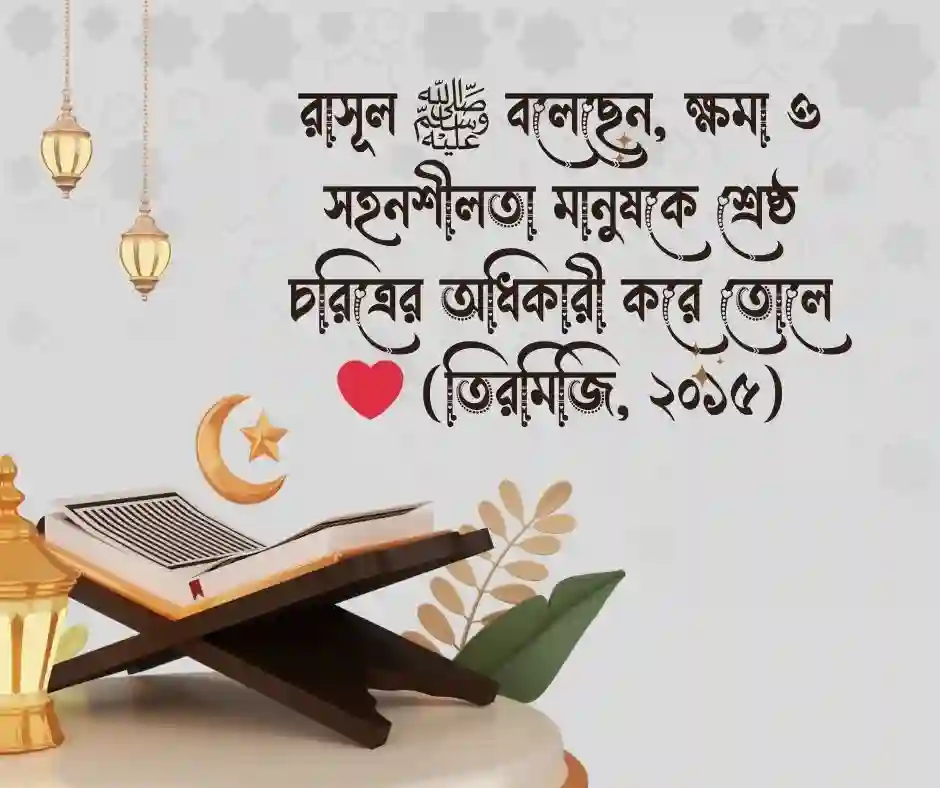 রাসূল ﷺ বলেছেন, ক্ষমা ও
সহনশীলতা মানুষকে শ্রেষ্ঠ
চরিত্রের অধিকারী করে তোলে
❤️ (তিরমিজি, ২০১৫)